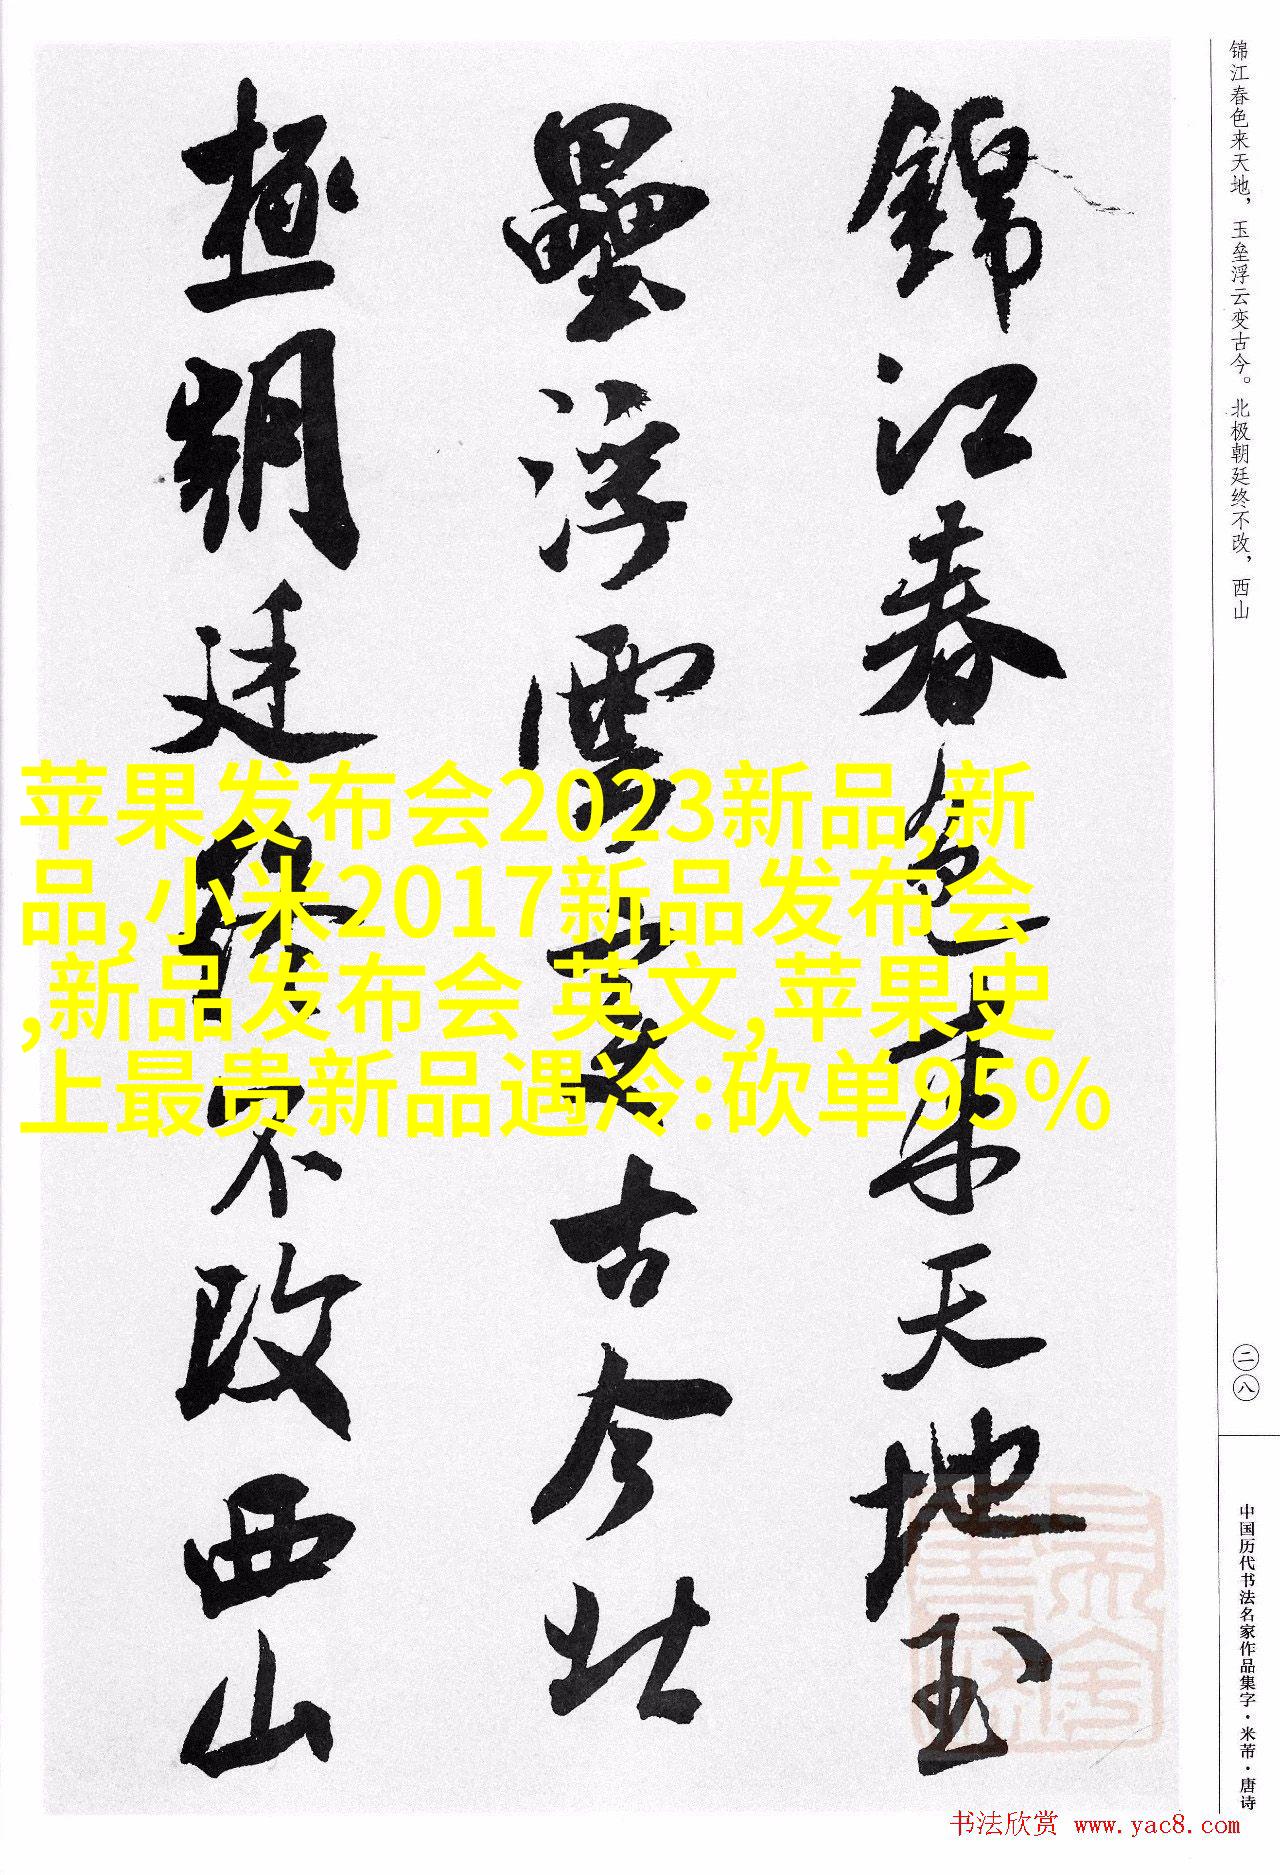 锦江春色来天地，玉垒浮云变古今。北极朝廷终不改，西山
錦江春色来天地玉
壘浮雲變古今北
極朝廷終不改西山
苹果发布会2023新品,新
品,小米2017新品发布会
,新品发布会 英文,苹果史
上最贵新品遇冷:砍单95%
二八
中国历代书法名家作品集字·米芾·唐诗
书法欣赏 www.yac8.com